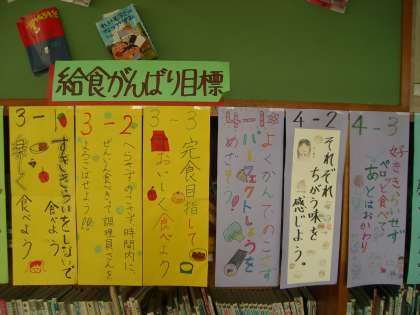 給食がんばり目標
3-1
すききらいをしないで
食べよう
楽しく食べよう
3-2
へらさずのこさず時間内に、
ぜんぶ食べきって調理員さんを
よろこばせよう
3-3
完食目指して
おいしく食べよう
4-1
よくかんでのこさず
パーフェクトしょうを
めざそう!
4-2
それぞれ
ちがう味を
感じよう。
4-3
好ききらいせず
ペロッと食べて
あとはおかわり!